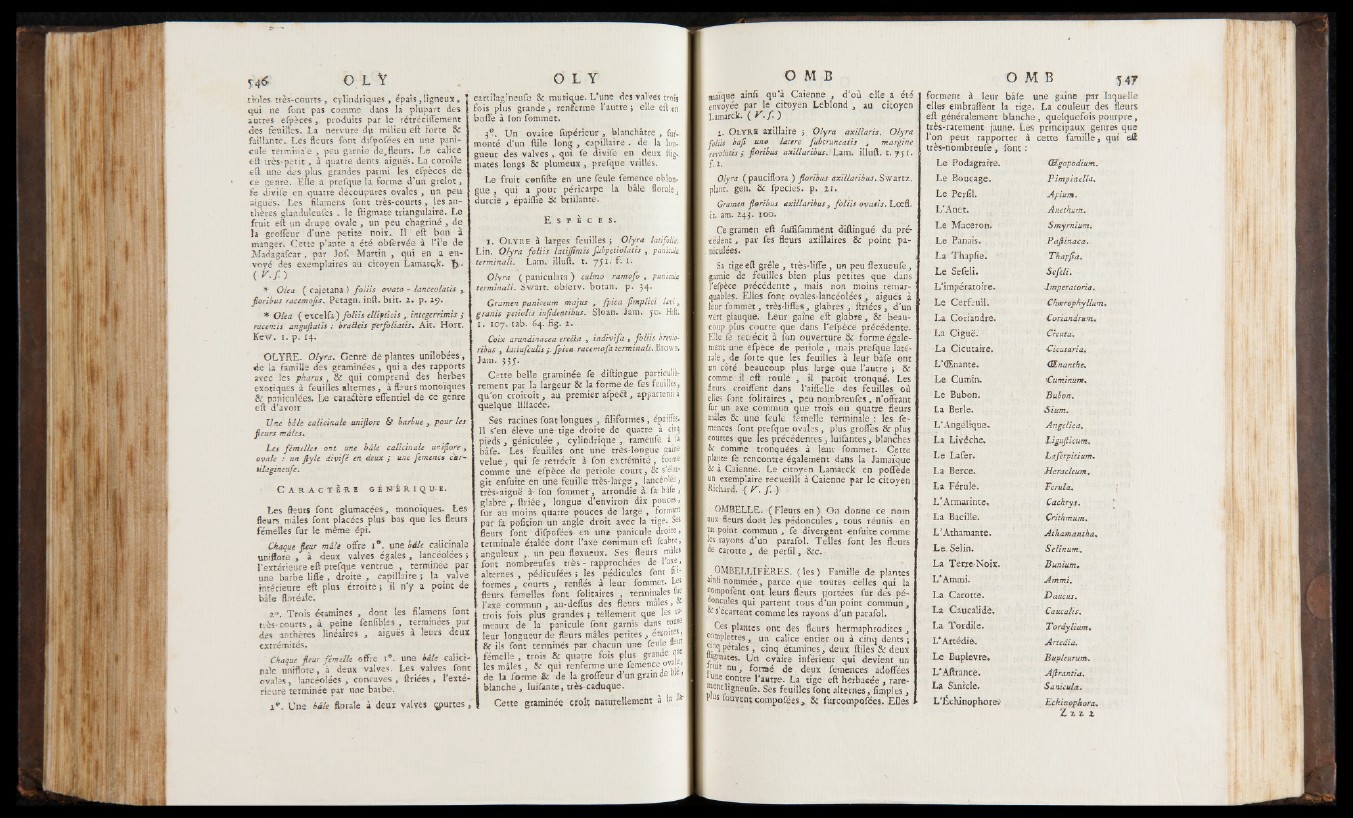 546 OLY
tioles très-courts, cylindriques, épais, ligneux,
qui ne sont pas comme dans la plupart des
autres espèces, produits par le rétrécissement
des feuilles. La nervure du milieu est forte &
saillante. Les fleurs sont disposées en une pani-
cule terminale, peu garnie de fleurs. Le calice
est très-petit, à quatre dents aiguës. La corolle
est une des plus grandes parmi les espèces de
ce genre. Elle a presque la forme d'un grelot,
se divise en quatre découpures ovales, un peu
aiguës. Les filamens sont très-courts, les an-
thères glanduleuses. le stigmate triangulaire. Le
fruit est un drupe ovale, un peu chagriné, de
la grosseur d'une petite noix. Il est bon à
manger. Cette plante a été observée à l'île de
Madagascar, par Jos. Martin, qui en a en-
voyé des exemplaires au citoyen Lamarck. ♄.
( V. s. )
* Olea ( cajetana ) foliis ovato-lanceolatis,
floribus racemosis. Petagn. inst. brit. 2. p. 29.
* Olea ( excelsa ) foliis ellipticis, integerrimis;
racemis angustatis; bracteis perfoliatis. Ait. Hort.
Kew. 1. p. 14.
OLYRE. Olyra. Genre de plantes unilobées,
de la famille des graminées, qui a des rapports
avec les pharus, & qui comprend des herbes
exotiques à feuilles alternes, à fleurs monoïques
& paniculées. Le caractère essentiel de ce genre
est d'avoir
Une bâle calicinale uniflore & barbue, pour les
fleurs mâles.
Les femelles ont une bâle calicinale uniflore,
ovale : un style divisé en deux ; une semence car-
tilagineuse.
CARACTÈRE GÉNÉRIQUE.
Les fleurs sont glumacées, monoïques. Les
fleurs mâles sont placées plus bas que les fleurs
femelles sur le même épi.
Chaque fleur mâle offre 1°. une bâle calicinale
uniflore, à deux valves égales, lancéolées;
l'extérieure est presque ventrue, terminée par
une barbe lisse, droite, capillaire; la valve
intérieure est plus étroite; il n'y a point de
bâle floréale.
2°. Trois étamines, dont les filamens sont
très-courts, à peine sensibles, terminées par
des anthères linéaires, aiguës à leurs deux
extrémités.
Chaque fleur femelle offre 1°. une bâle calici-
nale uniflore, à deux valves. Les valves sont
ovales, lancéolées, concaves, striées, l'exté-
rieure terminée par une barbe.
2°. Une bâle florale à deux valves courtes,
OLY
cartilagineuse & mutique. L'une des valves trois
fois plus grande, renferme l'autre; elle est en
bosse à son sommet.
3°. Un ovaire supérieur, blanchâtre, sur-
monté d'un stile long, capillaire, de la lon-
gueur des valves, qui se divise en deux stig-
mates longs & plumeux, presque vrillés.
Le fruit consiste en une seule semence oblon-
gue, qui a pour péricarpe la bâle florale,
durcie, épaissie & brillante.
ESPÈCES.
1. OLYRE à larges feuilles; Olyra latifolia.
Lin. Olyra foliis latissimis subpetiolatis, panicula
terminali. Lam. illust. t. 751. f. 1.
Olyra ( paniculata ) culmo ramoso, panicula
terminali. Swart. observ. botan. p. 34.
Gramen paniceum majus, spica simplici laxa,
granis petiolis insidentibus. Sloan. Jam. 30. Hist.
1. 107. tab. 64. fig. 2.
Coix arundinacea erecta, indivisa, foliis brevio-
ribus, latiusculis; spica racemosa terminali. Brown.
Jam. 335.
Cette belle graminée se distingue particuliè-
rement par la largeur & la forme de ses feuilles,
qu'on croiroit, au premier aspect, appartenir à
quelque liliacée.
Ses racines sont longues, filiformes, épaisses.
Il s'en élève une tige droite de quatre à cinq
pieds, géniculée, cylindrique, rameuse à sa
bâse. Les feuilles ont une très-longue gaine
velue, qui se retrécit à son extrémité, forme
comme une espèce de petiole court, & s'élar-
git ensuite en une feuille très-large, lancéolée,
très-aiguë à son sommet, arrondie à sa bâse,
glabre, striée, longue d'environ dix pouces,
sur au moins quatre pouces de large, formant
par sa position un angle droit avec la tige. Ses
fleurs sont disposées en une panicule droite,
terminale étalée dont l'axe commun est scabre,
anguleux, un peu flexueux. Ses fleurs mâles
sont nombreuses très-rapprochées de l'axe,
alternes, pédiculées; les pédicules sont fili-
formes, courts, renflés à leur sommet. Les
fleurs femelles sont solitaires, terminales sur
l'axe commun, au-dessus des fleurs mâles, &
trois fois plus grandes; tellement que les ra-
meaux de la panicule sont garnis dans toute
leur longueur de fleurs mâles petites, étroites,
& ils sont terminés par chacun une seule fleur
femelle, trois & quatre fois plus grande que
les mâles, & qui renferme une semence ovale,
de la forme & de la grosseur d'un grain de blé,
blanche, luisante, très-caduque.
Cette graminée croît naturellement à la Ja-
OMB
maïque ainsi qu'à Caïenne, d'où elle a été
envoyée par le citoyen Leblond, au citoyen
Lamarck. ( V. s. )
2. OLYRE axillaire; Olyra axillaris. Olyra
foliis basi uno latere subtruncatis, margine
revolutis; floribus axillaribus. Lam. illust. t. 751.
f. 2.
Olyra ( pauciflora ) floribus axillaribus. Swartz.
plant. gen. & species. p. 21.
Gramen floribus axillaribus, foliis ovatis. Lœfl.
it. am. 243. 100.
Ce gramen est suffisamment distingué du pré-
cédent, par ses fleurs axillaires & point pa-
niculées.
Sa tige est grêle, très-lisse, un peu flexueuse,
garnie de feuilles bien plus petites que dans
l'espèce précédente, mais non moins remar-
quables. Elles sont ovales-lancéolées, aiguës à
leur sommet, très-lisses, glabres, striées, d'un
vert glauque. Leur gaine est glabre, & beau-
coup plus courte que dans l'espèce précédente.
Elle se retrécit à son ouverture & forme égale-
ment une espèce de petiole, mais presque laté-
rale, de sorte que les feuilles à leur bâse ont
un côté beaucoup plus large que l'autre; &
comme il est roulé, il paroît tronqué. Les
fleurs croissent dans l'aisselle des feuilles où
elles sont solitaires, peu nombreuses, n'offrant
sur un axe commun que trois ou quatre fleurs
mâles & une seule femelle terminale; les se-
mences sont presque ovales, plus grosses & plus
courtes que les précédentes, luisantes, blanches
& comme tronquées à leur sommet. Cette
plante se rencontre également dans la Jamaïque
& à Caïenne. Le citoyen Lamarck en possède
un exemplaire recueilli à Caïenne par le citoyen
Richard. ( V. s. )
OMBELLE. ( Fleurs en ) On donne ce nom
aux fleurs dont les pédoncules, tous réunis en
un point commun, se divergent ensuite comme
les rayons d'un parasol. Telles sont les fleurs
de carotte, de persil, &c.
OMBELLIFÈRES. ( les ) Famille de plantes
ainsi nommée, parce que toutes celles qui la
composent ont leurs fleurs portées sur des pé-
doncules qui partent tous d'un point commun,
& s'écartent comme les rayons d'un parasol.
Ces plantes ont des fleurs hermaphrodites,
complettes, un calice entier ou à cinq dents;
cinq pétales, cinq étamines, deux stiles & deux
stigmates. Un ovaire inférieur qui devient un
fruit nu, formé de deux semences adossées
l'une contre l'autre. La tige est herbacée, rare-
ment ligneuse. Ses feuilles sont alternes, simples,
plus souvent composées, & surcomposées. Elles
OMB 547
forment à leur bâse une gaine par laquelle
elles embrassent la tige. La couleur des fleurs
est généralement blanche, quelquefois pourpre,
très-rarement jaune. Les principaux genres que
l'on peut rapporter à cette famille, qui est
très-nombreuse, sont :
Le Podagraire. Œgopodium.
Le Boucage. Pimpinella.
Le Persil. Apium.
L'Anet. Anethum.
Le Maceron. Smyrnium.
Le Panais. Pastinaca.
La Thapsie. Thapsia.
Le Seseli. Seseli.
L'impératoire. Imperatoria.
Le Cerfeuil. Chærophyllum.
La Coriandre. Coriandrum.
La Ciguë. Cicuta.
La Cicutaire. Cicutaria.
L'Œnante. Œnanthe.
Le Cumin. Cuminum.
Le Bubon. Bubon.
La Berle. Sium.
L'Angélique. Angelica.
La Livêche. Ligusticum.
Le Laser. Laserpitium.
La Berce. Heracleum.
La Férule. Ferula.
L'Armarinte. Cachrys.
La Bacille. Crithmum.
L'Athamante. Athamantha.
Le Selin. Selinum.
La Terre-Noix. Bunium.
L'Ammi. Ammi.
La Carotte. Daucus.
La Caucalide. Caucalis.
La Tordile. Tordylium.
L'Artédie. Artedia.
Le Buplevre. Bupleurum.
L'Astrance. Astrantia.
La Sanicle. Sanicula.
L'Échinophore. Echinophora.
Zzz 2